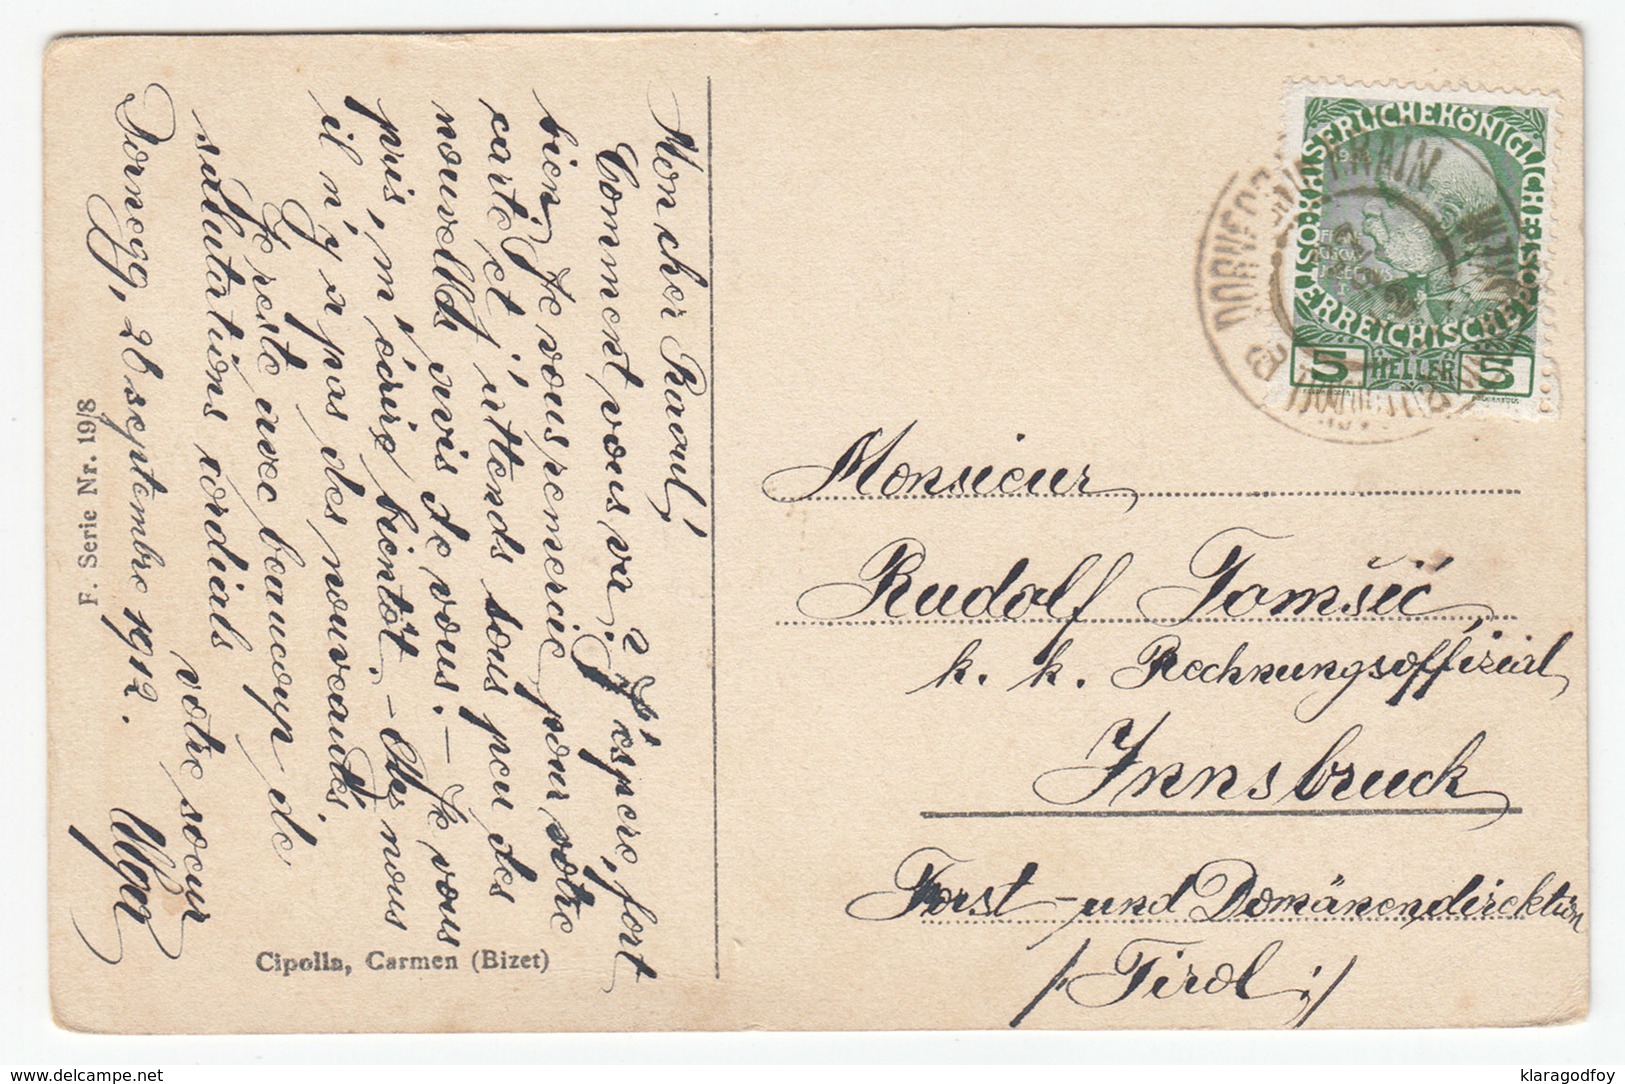 Mon cher Raoul,
Comment vous va? J'espère, fort
bien. Je vous remercie pour votre
carte, et j'attends sous peu des
nouvells avis de vous. – Je vous
pris, m'écrire bientôt. – Chez nous
il n'y a pas des nouveautés.
Je reste avec beaucoup de
salutations cordials
votre soeur
Olga
Dornegg, 26 septembre 1912.
F. Serie Nr. 19/8
Cipolla, Carmen (Bizet)
KAISERLICHE KÖNIGLICHE
ÖSTERREICHISCHE POST
5 HELLER 5
DORNEGG IN KRAIN
Monsieur
Rudolf Tomšič
k. k. Rechnungsoffizial
Innsbruck
Forst- und Domänendirektion
/: Tirol :/
klaragodfoy
www.delcampe.net